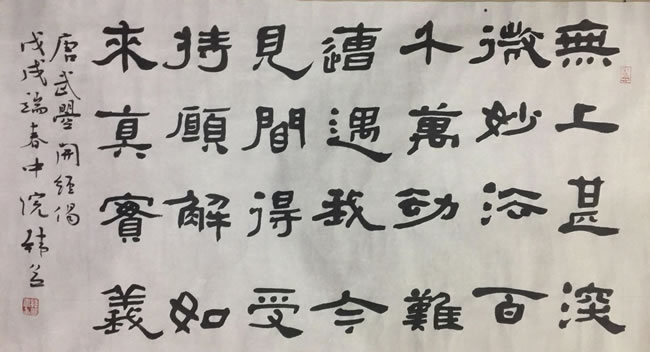 無上甚深
微妙法百
千萬劫難
遭遇我今
見聞得受
持願解如
來真實義
唐武曌開經偈
戊戌端春中浣